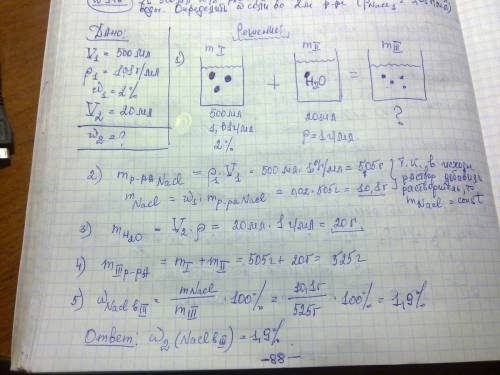 воды. Определить ω соли во 2м р-ре
Дано:
Решение:
V₁ = 500 мл
ρ₁ = 1,01 г/мл
ω₁ = 2%
V₂ = 20 мл
ω₂ = ?
1)
m I
m II
m III
+ H₂O =
500 мл
1,01 г/мл
2%
20 мл
ρ = 1 г/мл.
?
2) m р-ра NaCl = ρ₁ · V₁ = 500 мл · 1,01 г/мл = 505 г
m NaCl = ω₁ · m р-ра NaCl = 0,02 · 505 г = 10,1 г
Т.к. в исходн
раствор добавили
растворитель, то
m NaCl = const
3) m H₂O = V₂ · ρ = 20 мл · 1 г/мл = 20 г.
4) m III р-ра = m I + m II = 505 г + 20 г = 525 г
5) ω NaCl в III = m NaCl / m III · 100% = 10,1 г / 525 г · 100% = 1,9%
Ответ: ω₂ (NaCl в III) = 1,9%.
-88-